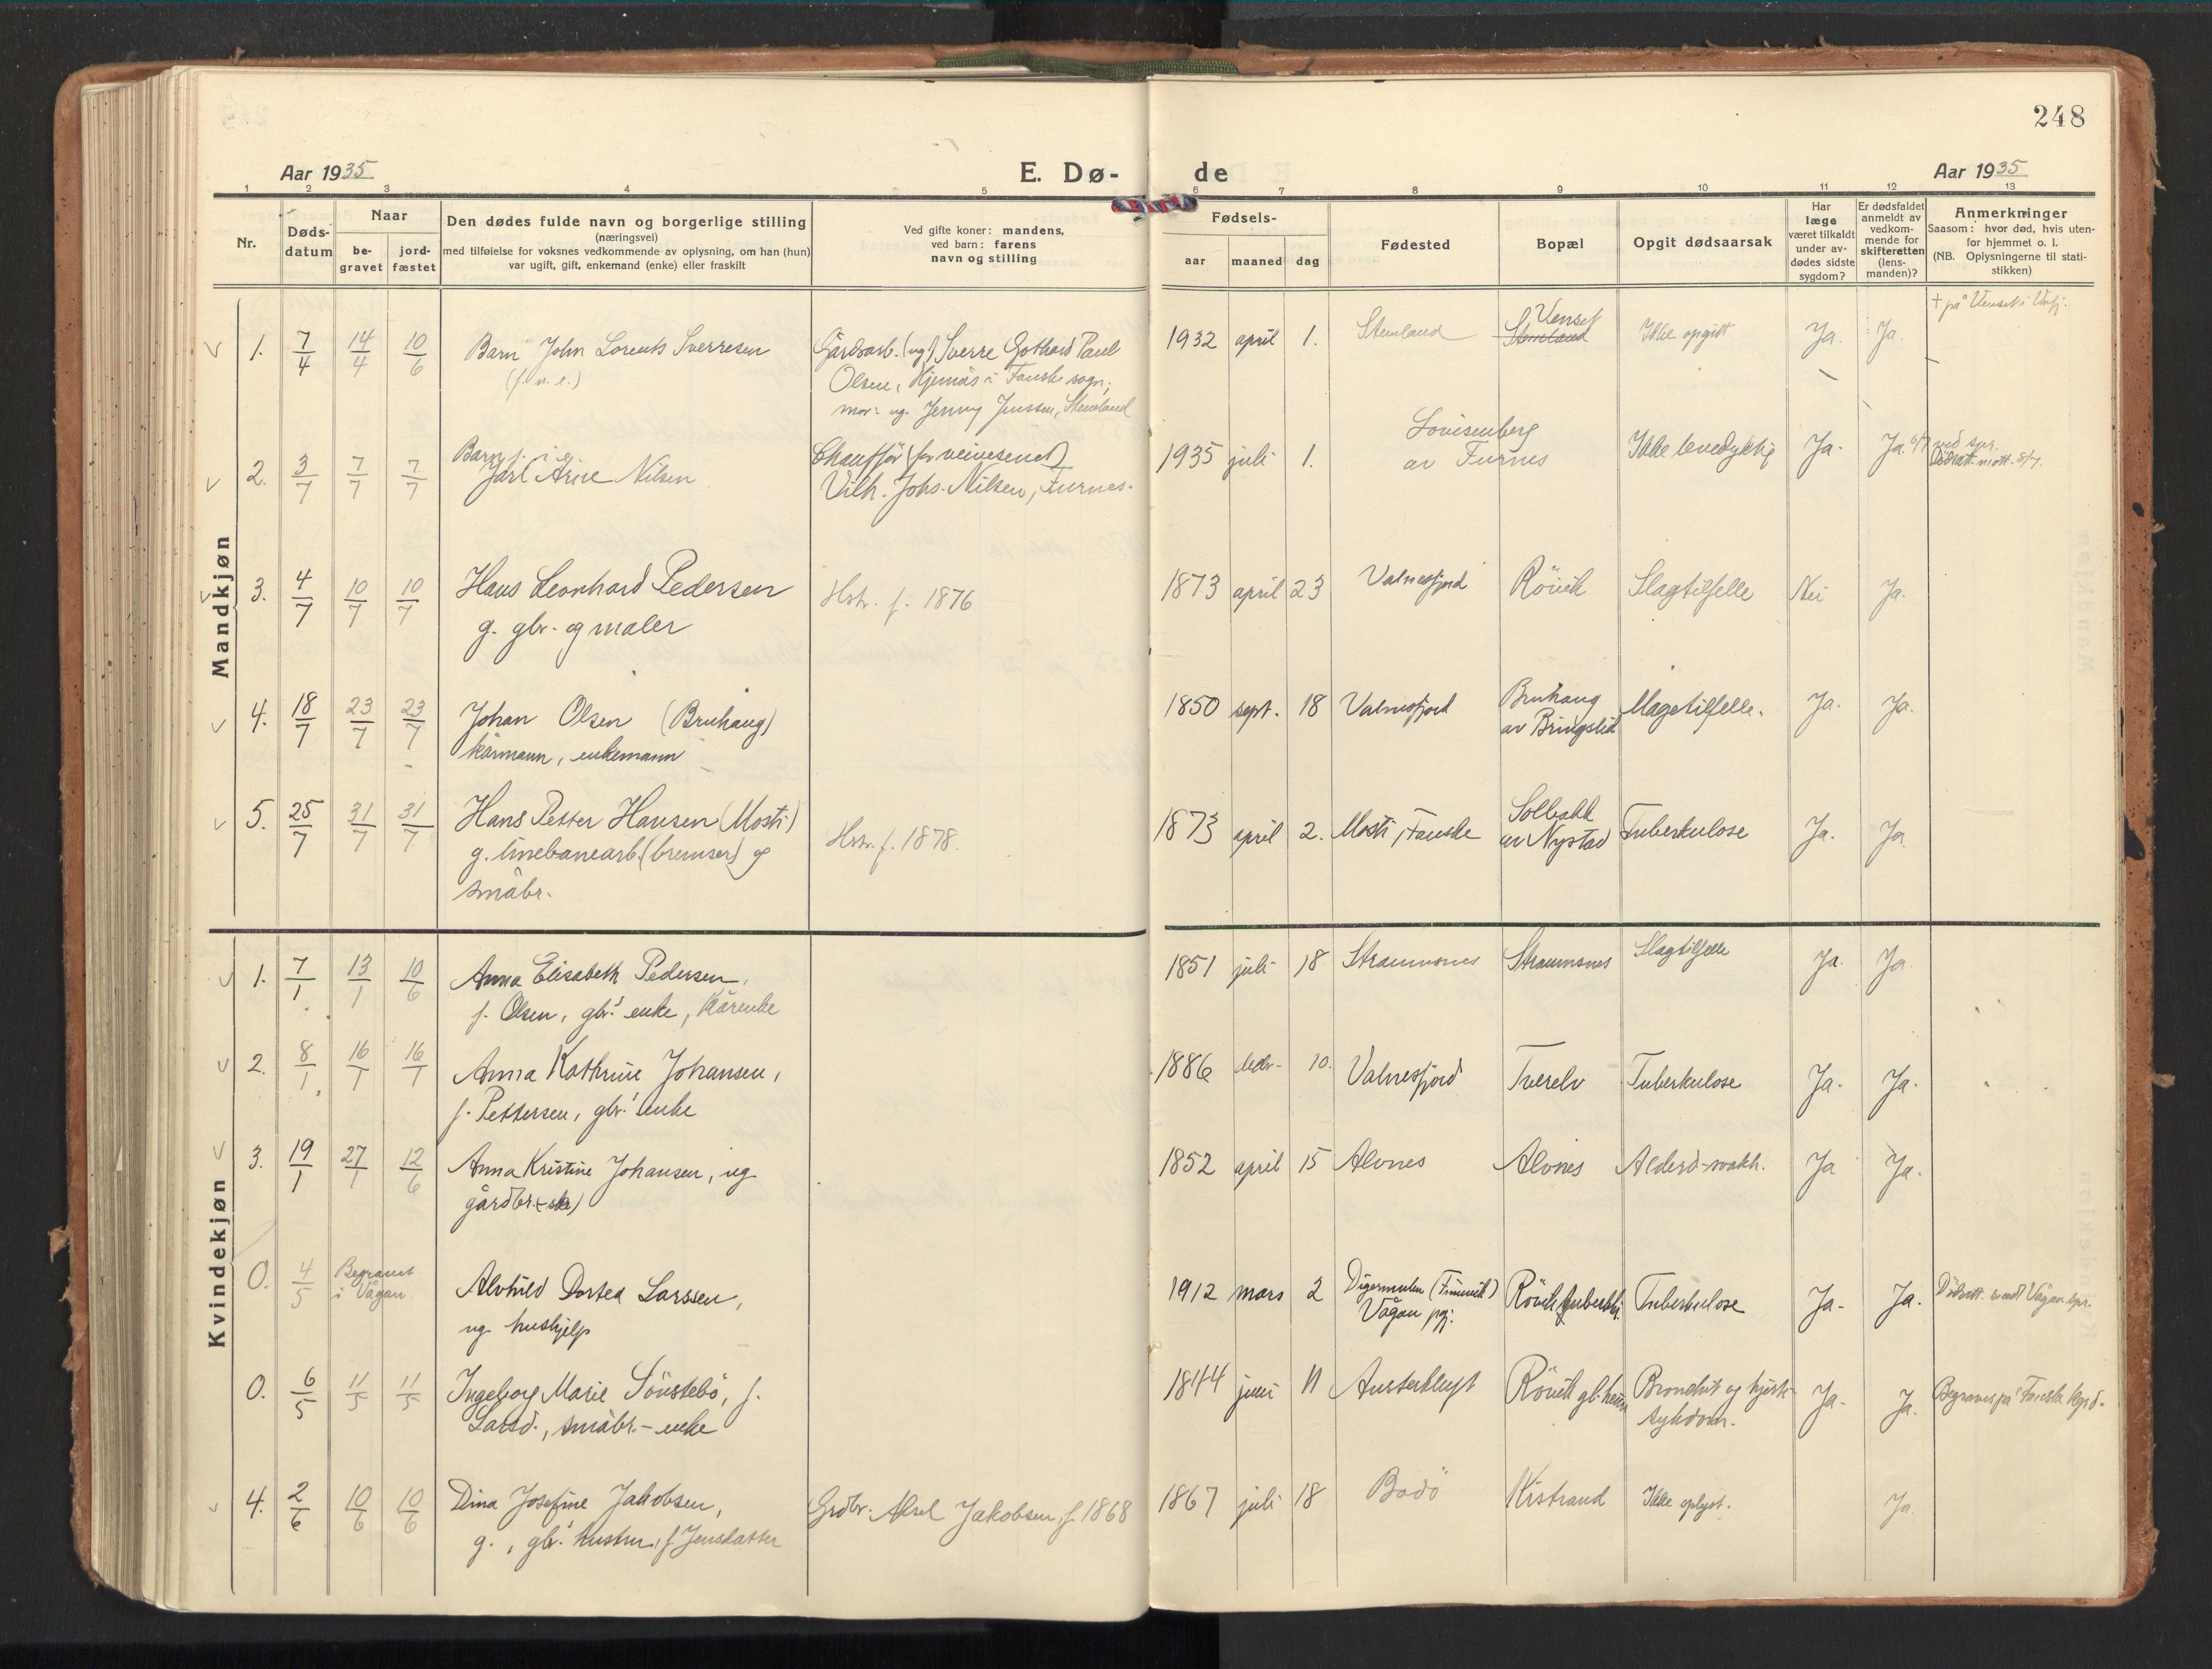 248
Aar 1935
E. Dø-
de
Aar 1935
1 2 3 4 5 6 7 8 9 10 11 12 13
Nr.
Døds-
datum
Naar
be-
gravet
jord-
fæstet
Den dødes fulde navn og borgerlige stilling
(næringsvei)
med tilføielse for voksnes vedkommende av oplysning, om han (hun)
var ugift, gift, enkemand (enke) eller fraskilt
Ved gifte koner: mandens,
ved barn: farens
navn og stilling
Fødsels-
aar maaned dag
Fødested
Bopæl
Opgit dødsaarsak
Har
læge
været tilkaldt
under av-
dødes sidste
sygdom?
Er dødsfaldet
anmeldt av
vedkom-
mende for
skifteretten
(lens-
manden)?
Anmerkninger
Saasom: hvor død, hvis uten-
for hjemmet o. l.
(NB. Oplysningerne til stati-
stikken)
Mandkjøn
1. 7/4 14/4 10/6 Barn John Lorents Sverresen
(f. u. e.)
Gårdsarb. (ug) Sverre Gothard Paul
Olsen, Hjemås i Fauske sogn;
mor: ug. Jenny Jenssen, Stemland
1932 april 1. Stemland
Venset
Stemland
Ikke opgitt Ja. Ja.
+ på Venset i
2. 3/7 7/7 7/7 Barn f. i e.
Jarl Arne Nilsen
Chauffør (for veivesenet)
Vilh. Johs. Nilsen, Furnes.
1935 juli 1. Lovisenberg
av Furnes
Ikke levedyktig Ja. Ja. 6/7
mott. 8/7.
3. 4/7 10/7 10/7 Hans Leonhard Pedersen
g. gbr. og maler
Hstr. f. 1876
1873 april 23 Valnesfjord Røvik Slagtilfelle Nei Ja.
4. 18/7 23/7 23/7 Johan Olsen (Bruhaug)
kårmann, enkemann
1850 sept. 18 Valnesfjord Bruhaug
av Bringslid
Magetilfelle. Ja. Ja.
5. 25/7 31/7 31/7 Hans Petter Hansen (Mosti)
g. linebanearb. (bremser) og
småbr.
Hstr. f. 1878.
1873 april 2. Mosti, Fauske Solbakk
av Nystad
Tuberkulose Ja. Ja
Kvindekjøn
1. 7/1 13/1 10/6 Anna Elisabeth Pedersen,
f. Olsen, gbr.' enke, kårenke
1851 juli 18 Straumsnes Straumsnes Slagtilfelle Ja. Ja
2. 8/1 16/1 16/1 Anna Kathrine Johansen,
f. Pettersen, gbr.' enke
1886 10. Valnesfjord Tverelv Tuberkulose Ja. Ja.
3. 19/1 27/1 12/6 Anna Kristine Johansen, ug
gårdbr. (-ske)
1852 april 15 Alvnes Alvnes Alderd.-svakh. Ja Ja.
0. 4/5 Begravet
i Vågan.
Alvhild Dortea Larssen,
ug. hushjelp
1912 mars 2 Digermulen (Finnvik)
Vågan pgj.
Røvik tuberkh. Tuberkulose Ja. Ja. Vågan spr.
0. 6/5 11/5 11/5 Ingeborg Marie Sönstebö, f.
Larsd., småbr.-enke
1844 juni 11 Austerkløft Røvik gl.heim Bronchit og hjerte-
sykdom.
Ja. Ja. Begraves på Fauske kgrd.
4. 2/6 10/6 10/6 Dina Josefine Jakobsen,
g., gbr.' hustru, f. Jensdatter
Grdbr. Aksel Jakobsen, f. 1868
1867 juli 18 Bodö Kistrand Ikke oplyst. Ja.